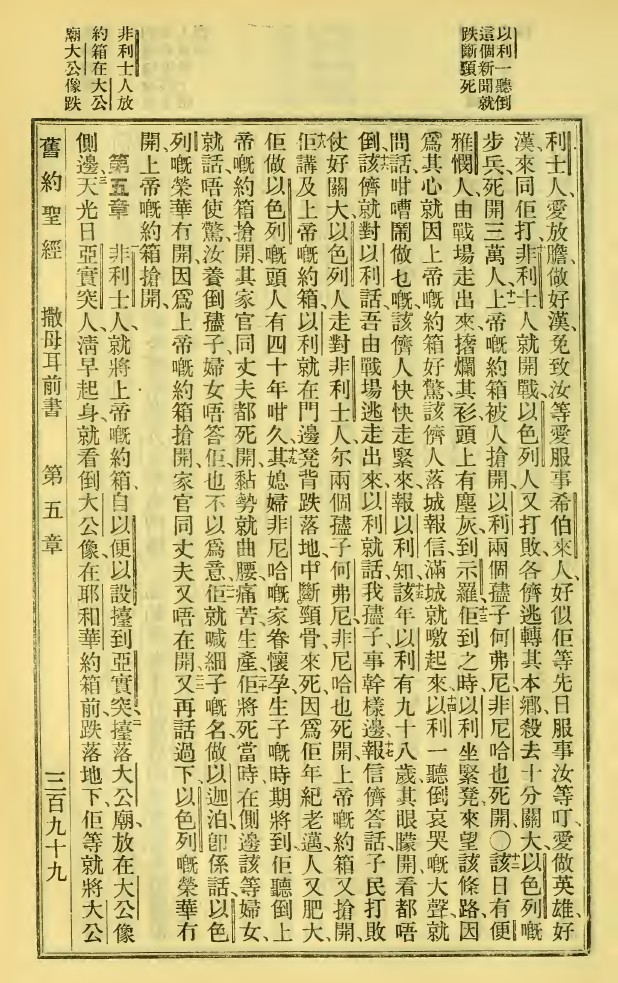 以利一聽倒
這個新聞就
跌斷頸死
非利士人放
約箱在大公
廟大公像跌
利士人、愛放膽做好漢、免致汝等愛服事希伯來人、好似佢等先日服事汝等叮、愛做英雄好
漢、來同佢打、十非利士人就開戰、以色列人又打敗、各儕逃轉其本鄉、殺去十分關大、以色列嘅
步兵死開三萬人、十一上帝嘅約箱被人搶開、以利兩個孻子何弗尼、非尼哈也死開、〇十二該日有便
雅憫人由戰場走出來、撦爛其衫、頭上有塵灰、到示羅、十三佢到之時、以利坐緊凳來望該條路、因
爲其心就因上帝嘅約箱好驚、該儕人落城報信、滿城就噭起來、十四以利一聽倒哀哭嘅大聲、就
問話、咁嘈鬧做乜嘅、該儕人快快走緊來報以利知、十五該年以利有九十八歲、其眼矇開看都唔
倒、十六該儕就對以利話、吾由戰場逃走出來、以利就話、我孻子事幹樣邊、十七報信儕答話、子民打敗
仗好關大、以色列人走對非利士人、尔兩個孻子何弗尼、非尼哈也死開、上帝嘅約箱又搶開、
十八佢講及上帝嘅約箱、以利就在門邊凳背跌落地中、斷頸骨來死、因爲佢年紀老邁、人又肥大、
佢做以色列嘅頭人有四十年咁久、十九其媳婦非尼哈嘅家眷懷孕、生子嘅時期將到、佢聽倒上
帝嘅約箱搶開、其家官同丈夫都死開、黏勢就曲腰、痛苦生產、二十佢將死當時、在側邊該等婦女、
就話、唔使驚、汝養倒孻子、婦女唔答佢、也不以爲意、二一佢就喊細子嘅名做以迦泊、卽係話以色
列嘅榮華冇開、因爲上帝嘅約箱搶開、家官同丈夫又唔在開、二二又再話過下、以色列嘅榮華冇
開、上帝嘅約箱搶開、
第五章 一非利士人、就將上帝嘅約箱、自以便以設擡到亞實突、二擡落大公廟、放在大公像
側邊、三天光日亞實突人、淸早起身、就看倒大公像在耶和華約箱前、跌落地下、佢等就將大公
舊約聖經 撒母耳前書 第五章 三百九十九